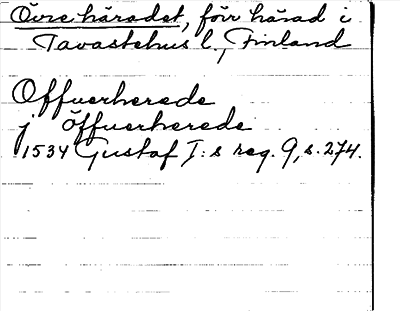 Övre häradet, förr härad i
Tavastehus l., Finland
Offuerherede
j Öffuerherede
1534 Gustaf I:s reg. 9, s. 274.